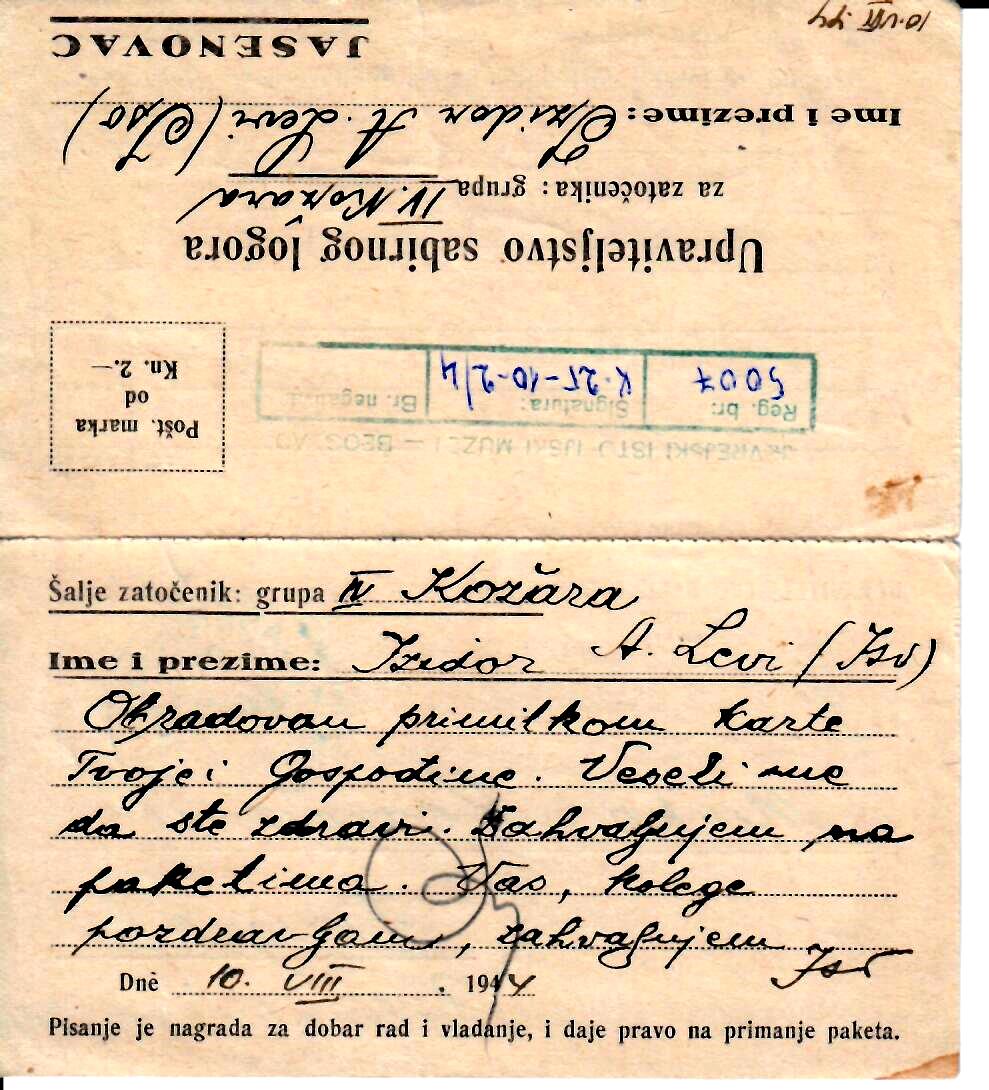 JEVREJSKI ISTORIJSKI MUZEJ — BEOGRAD
Reg. br: Signatura: Br. negativa
5007 K-25-10-2/4
Pošt. marka
od
Kn. 2.—
Upraviteljstvo sabirnog logora
za zatočenika: grupa IV. Kožara
Ime i prezime: Izidor A. Levi (Iso)
JASENOVAC
10. VIII 44
Šalje zatočenik: grupa IV Kožara
Ime i prezime: Izidor A. Levi (Iso)
Obradovan primitkom karte
Tvoje i Gospođine. Veseli me
da ste zdravi. Zahvaljujem na
paketima. Vas, kolege
pozdravljam, zahvaljujem
Iso
Dne 10. VIII . 1944
Pisanje je nagrada za dobar rad i vladanje, i daje pravo na primanje paketa.